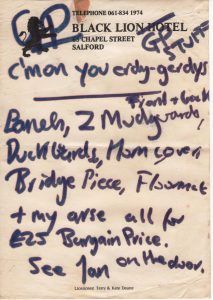 TELEPHONE 061-834 1974
BLACK LION HOTEL
65 CHAPEL STREET
SALFORD
c'mon you erdy-gerdys
Front + back
Bonch, 2 Mudguards,
Duckboards, Horn cover,
Bridge Piece, Floormat
+ my arse all for
£25 Bargain Price.
See Ian on the door.
Licensees: Terry & Kate Deane